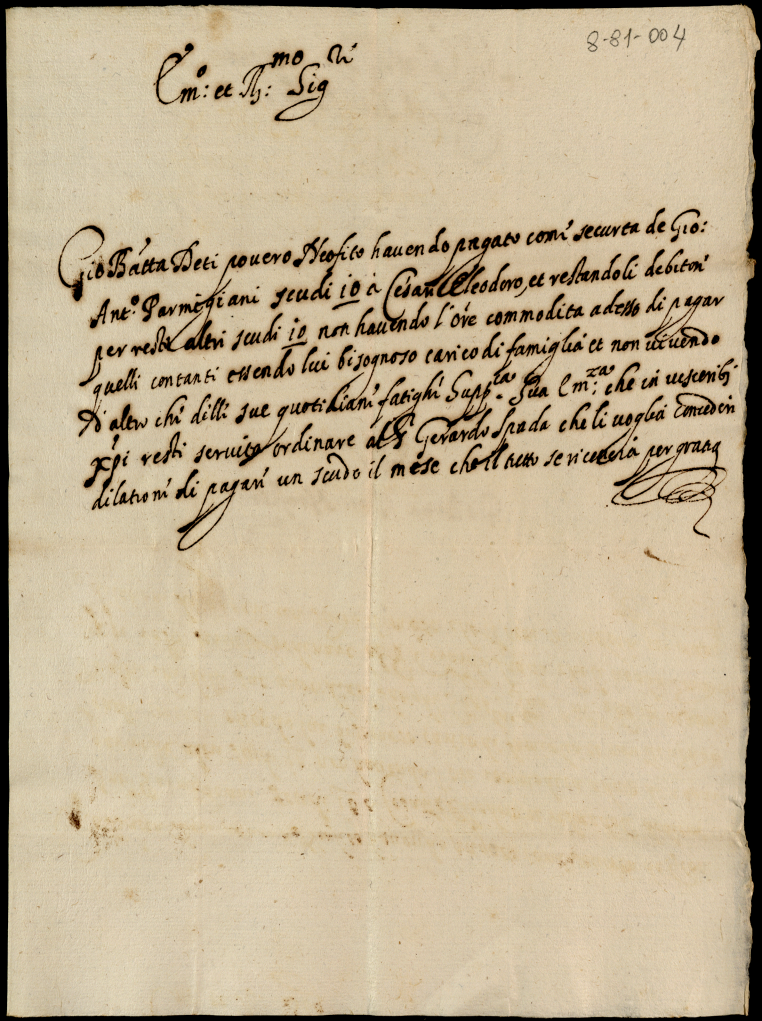 8-81-004
Em:o et R:mo Sigre
Gio Batta Deti povero Neofito havendo pagato come securta de Gio:
Ant:o Parmigiani scudi 10 à Cesare Eleodoro, et restandoli debitore
per resto altri scudi 10 non havendo l'Ore commodita adesso di pagar
quelli contanti essendo lui bisognoso carico di famiglia et non vivendo
d'altro che delli sue quotidiane fatighe Supp:ca Sua Em:za che in visceribus
xpi resti servita ordinare al Sr Gerardo Spada che li voglia conceder
dilatione di pagare un scudo il mese che il tutto se ricevera per gratia